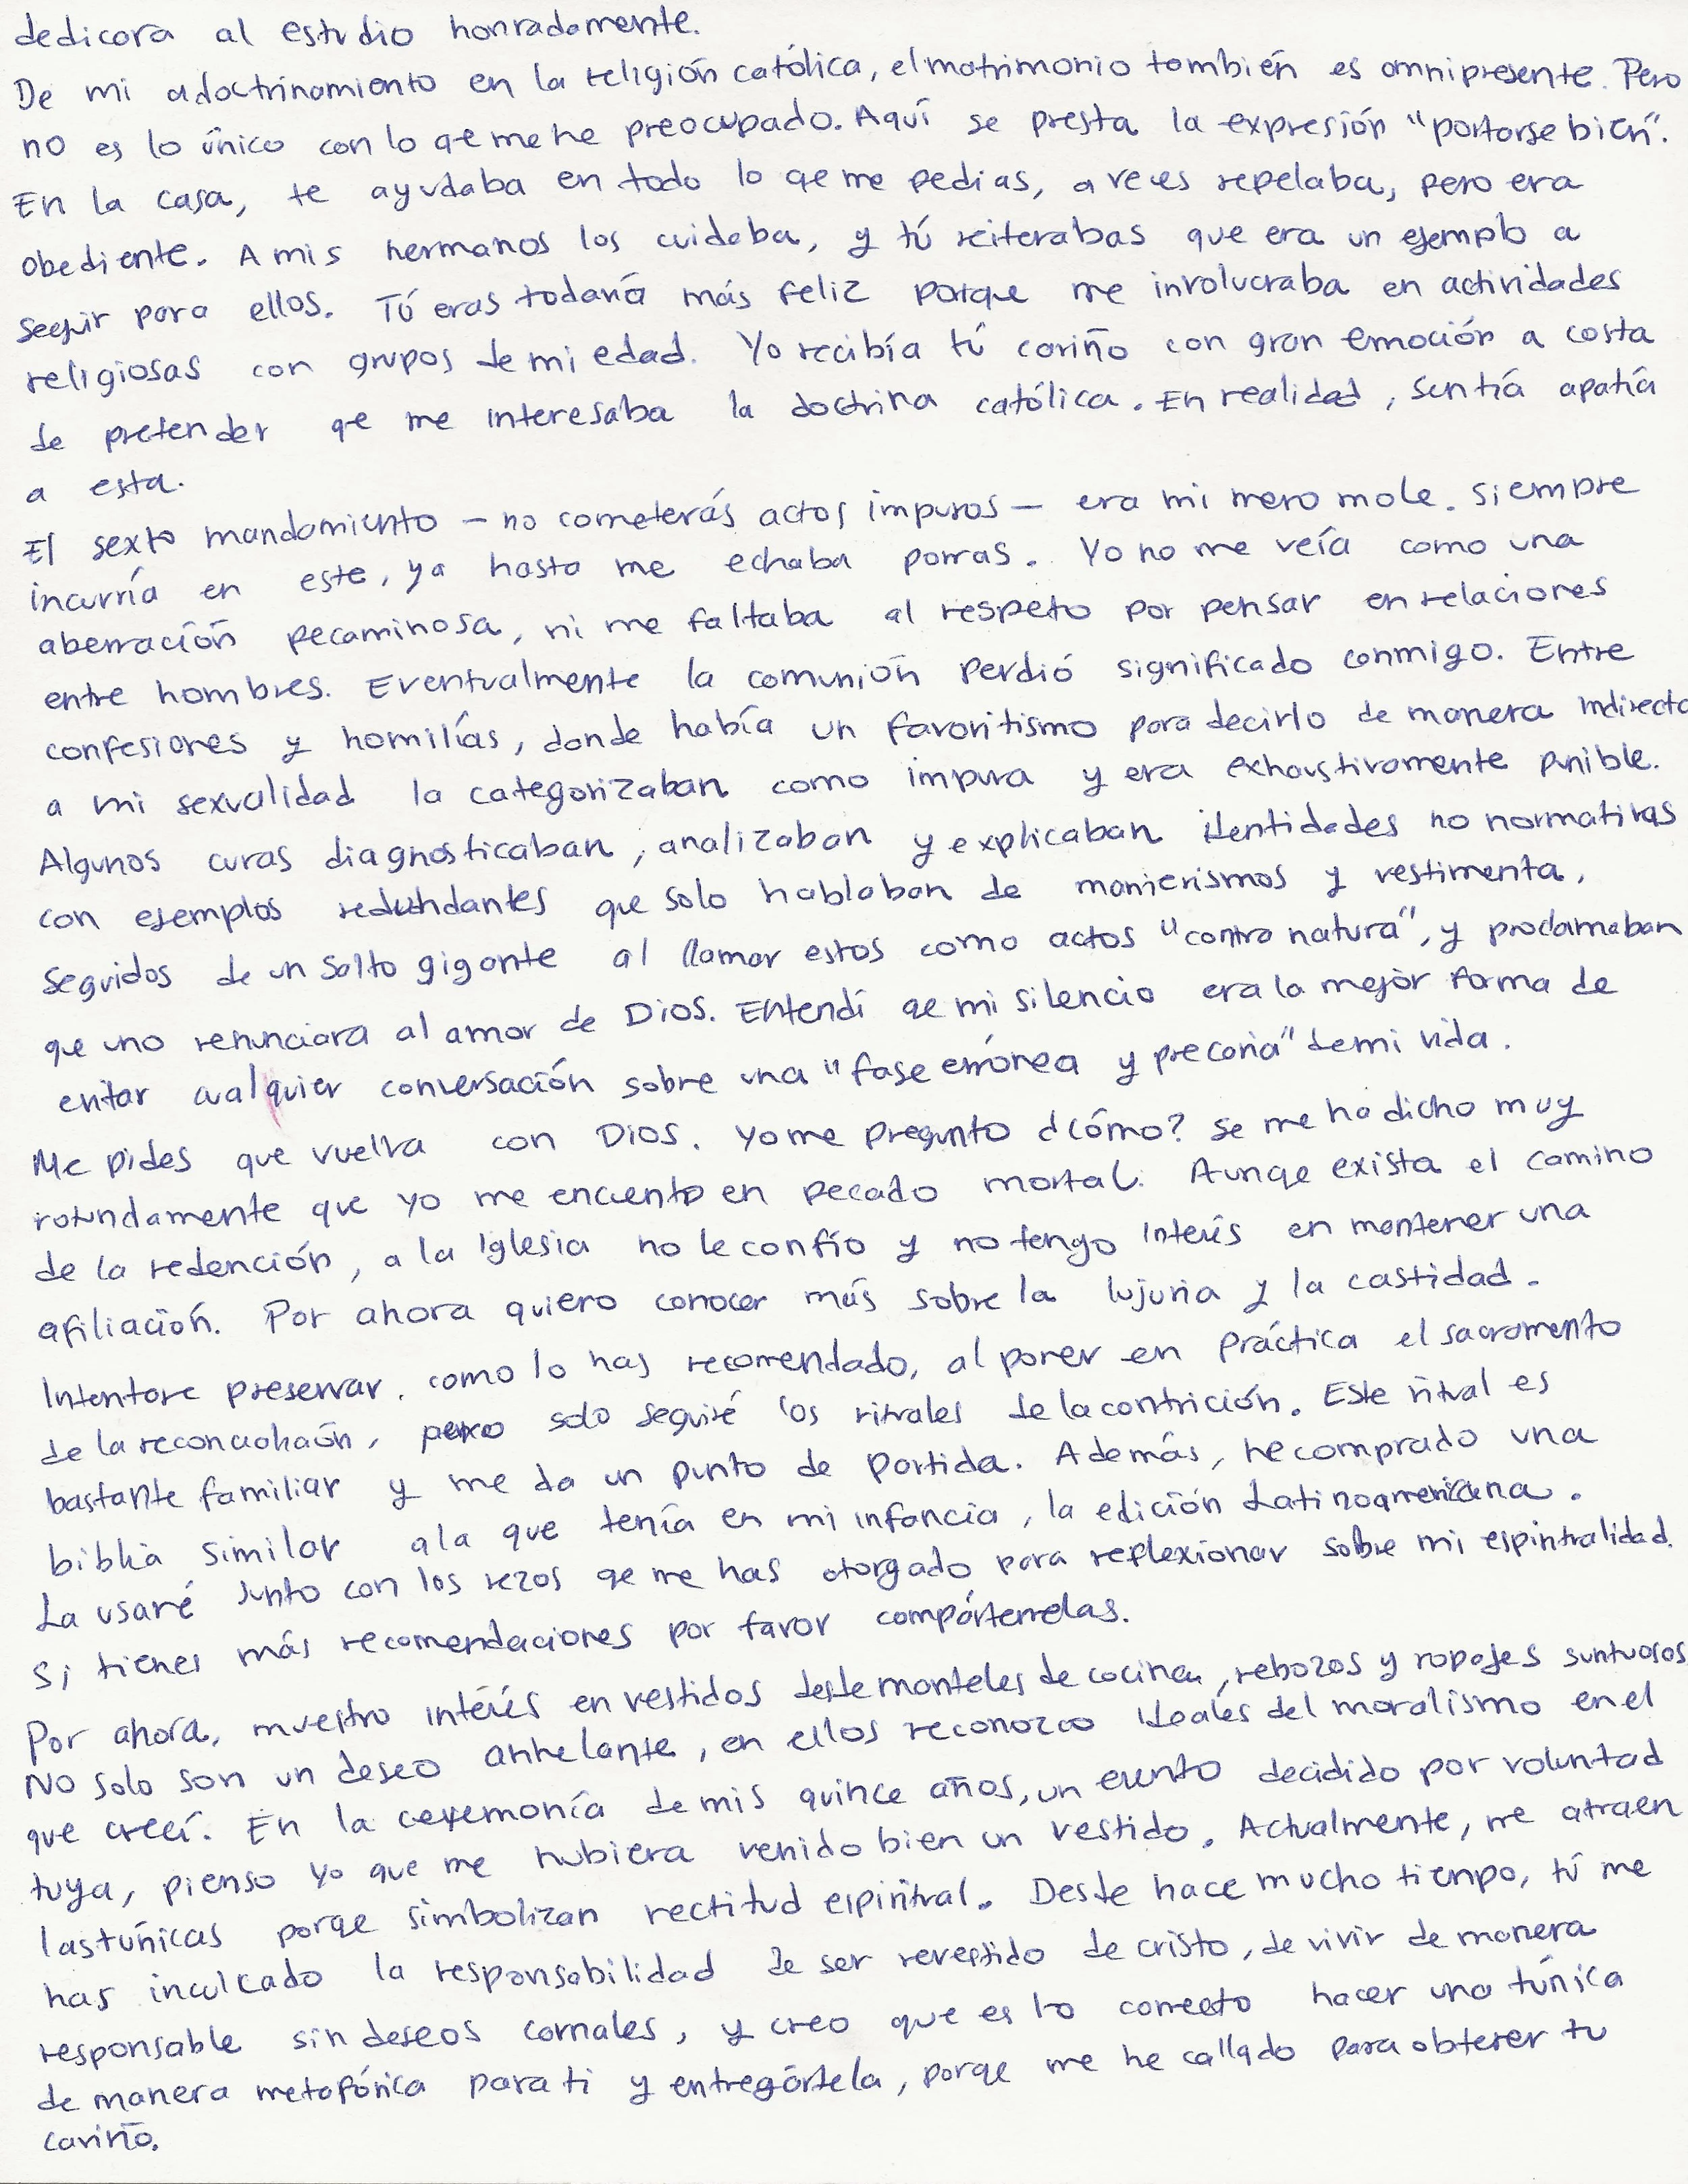 dedicara al estudio honradamente.
De mi adoctrinamiento en la religión católica, el matrimonio también es omnipresente. Pero
no es lo único con lo qe me he preocupado. Aquí se presta la expresión "portarse bien".
En la casa, te ayudaba en todo lo qe me pedias, a veces repelaba, pero era
obediente. A mis hermanos los cuidaba, y tú reiterabas que era un ejemplo a
seguir para ellos. Tú eras todavía más feliz porque me involucraba en actividades
religiosas con grupos de mi edad. Yo recibía tú cariño con gran emoción a costa
de pretender qe me interesaba la doctrina católica. En realidad, sentía apatía
a esta.
El sexto mandamiento – no cometerás actos impuros – era mi mero mole. Siempre
incurría en este, ya hasta me echaba porras. Yo no me veía como una
aberración pecaminosa, ni me faltaba al respeto por pensar en relaciones
entre hombres. Eventualmente la comunión perdió significado conmigo. Entre
confesiones y homilías, donde había un favoritismo para decirlo de manera indirecta
a mi sexualidad la categorizaban como impura y era exhaustivamente punible.
Algunos curas diagnosticaban, analizaban y explicaban identidades no normativas
con ejemplos redundantes que solo hablaban de manierismos y vestimenta,
seguidos de un salto gigante al llamar estos como actos "contra natura", y proclamaban
que uno renunciara al amor de Dios. Entendí qe mi silencio era la mejor forma de
evitar cualquier conversación sobre una "fase errónea y precoria" de mi vida.
Me pides que vuelva con Dios. Yo me pregunto ¿cómo? Se me ha dicho muy
rotundamente que yo me encuentro en pecado mortal. Aunqe exista el camino
de la redención, a la Iglesia no le confío y no tengo interés en mantener una
afiliación. Por ahora quiero conocer más sobre la lujuria y la castidad.
Intentare preservar, como lo has recomendado, al poner en práctica el sacramento
de la reconciliación, pero solo seguiré los rituales de la contrición. Este ritual es
bastante familiar y me da un punto de partida. Además, he comprado una
biblia similar a la que tenía en mi infancia, la edición Latinoamericana.
La usaré junto con los rezos qe me has otorgado para reflexionar sobre mi espiritualidad.
Si tienes más recomendaciones por favor compártemelas.
Por ahora, muestro interés en vestidos desde manteles de cocina, rebozos y ropajes suntuosos
No solo son un deseo anhelante, en ellos reconozco ideales del moralismo en el
que crecí. En la ceremonía de mis quince años, un evento decidido por voluntad
tuya, pienso yo que me hubiera venido bien un vestido. Actualmente, me atraen
las túnicas porqe simbolizan rectitud espiritual. Desde hace mucho tiempo, tú me
has inculcado la responsabilidad de ser revestido de cristo, de vivir de manera
responsable sin deseos carnales, y creo que es lo correcto hacer una túnica
de manera metafórica para ti y entregártela, porqe me he callado para obtener tu
cariño.